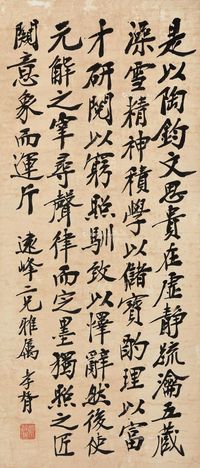 是以陶鈞文思貴在虛靜疏瀹五藏
澡雪精神積學以儲寶酌理以富
才研閱以窮照馴致以懌辭然後使
元解之宰尋聲律而定墨獨照之匠
闚意象而運斤 遠峰二兄雅屬 李